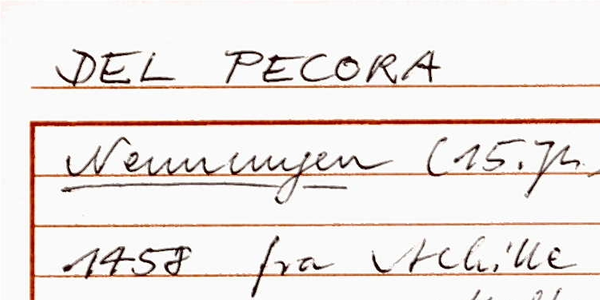 DEL PECORA
Nennungen (15. Jh.
1458 fra Achille